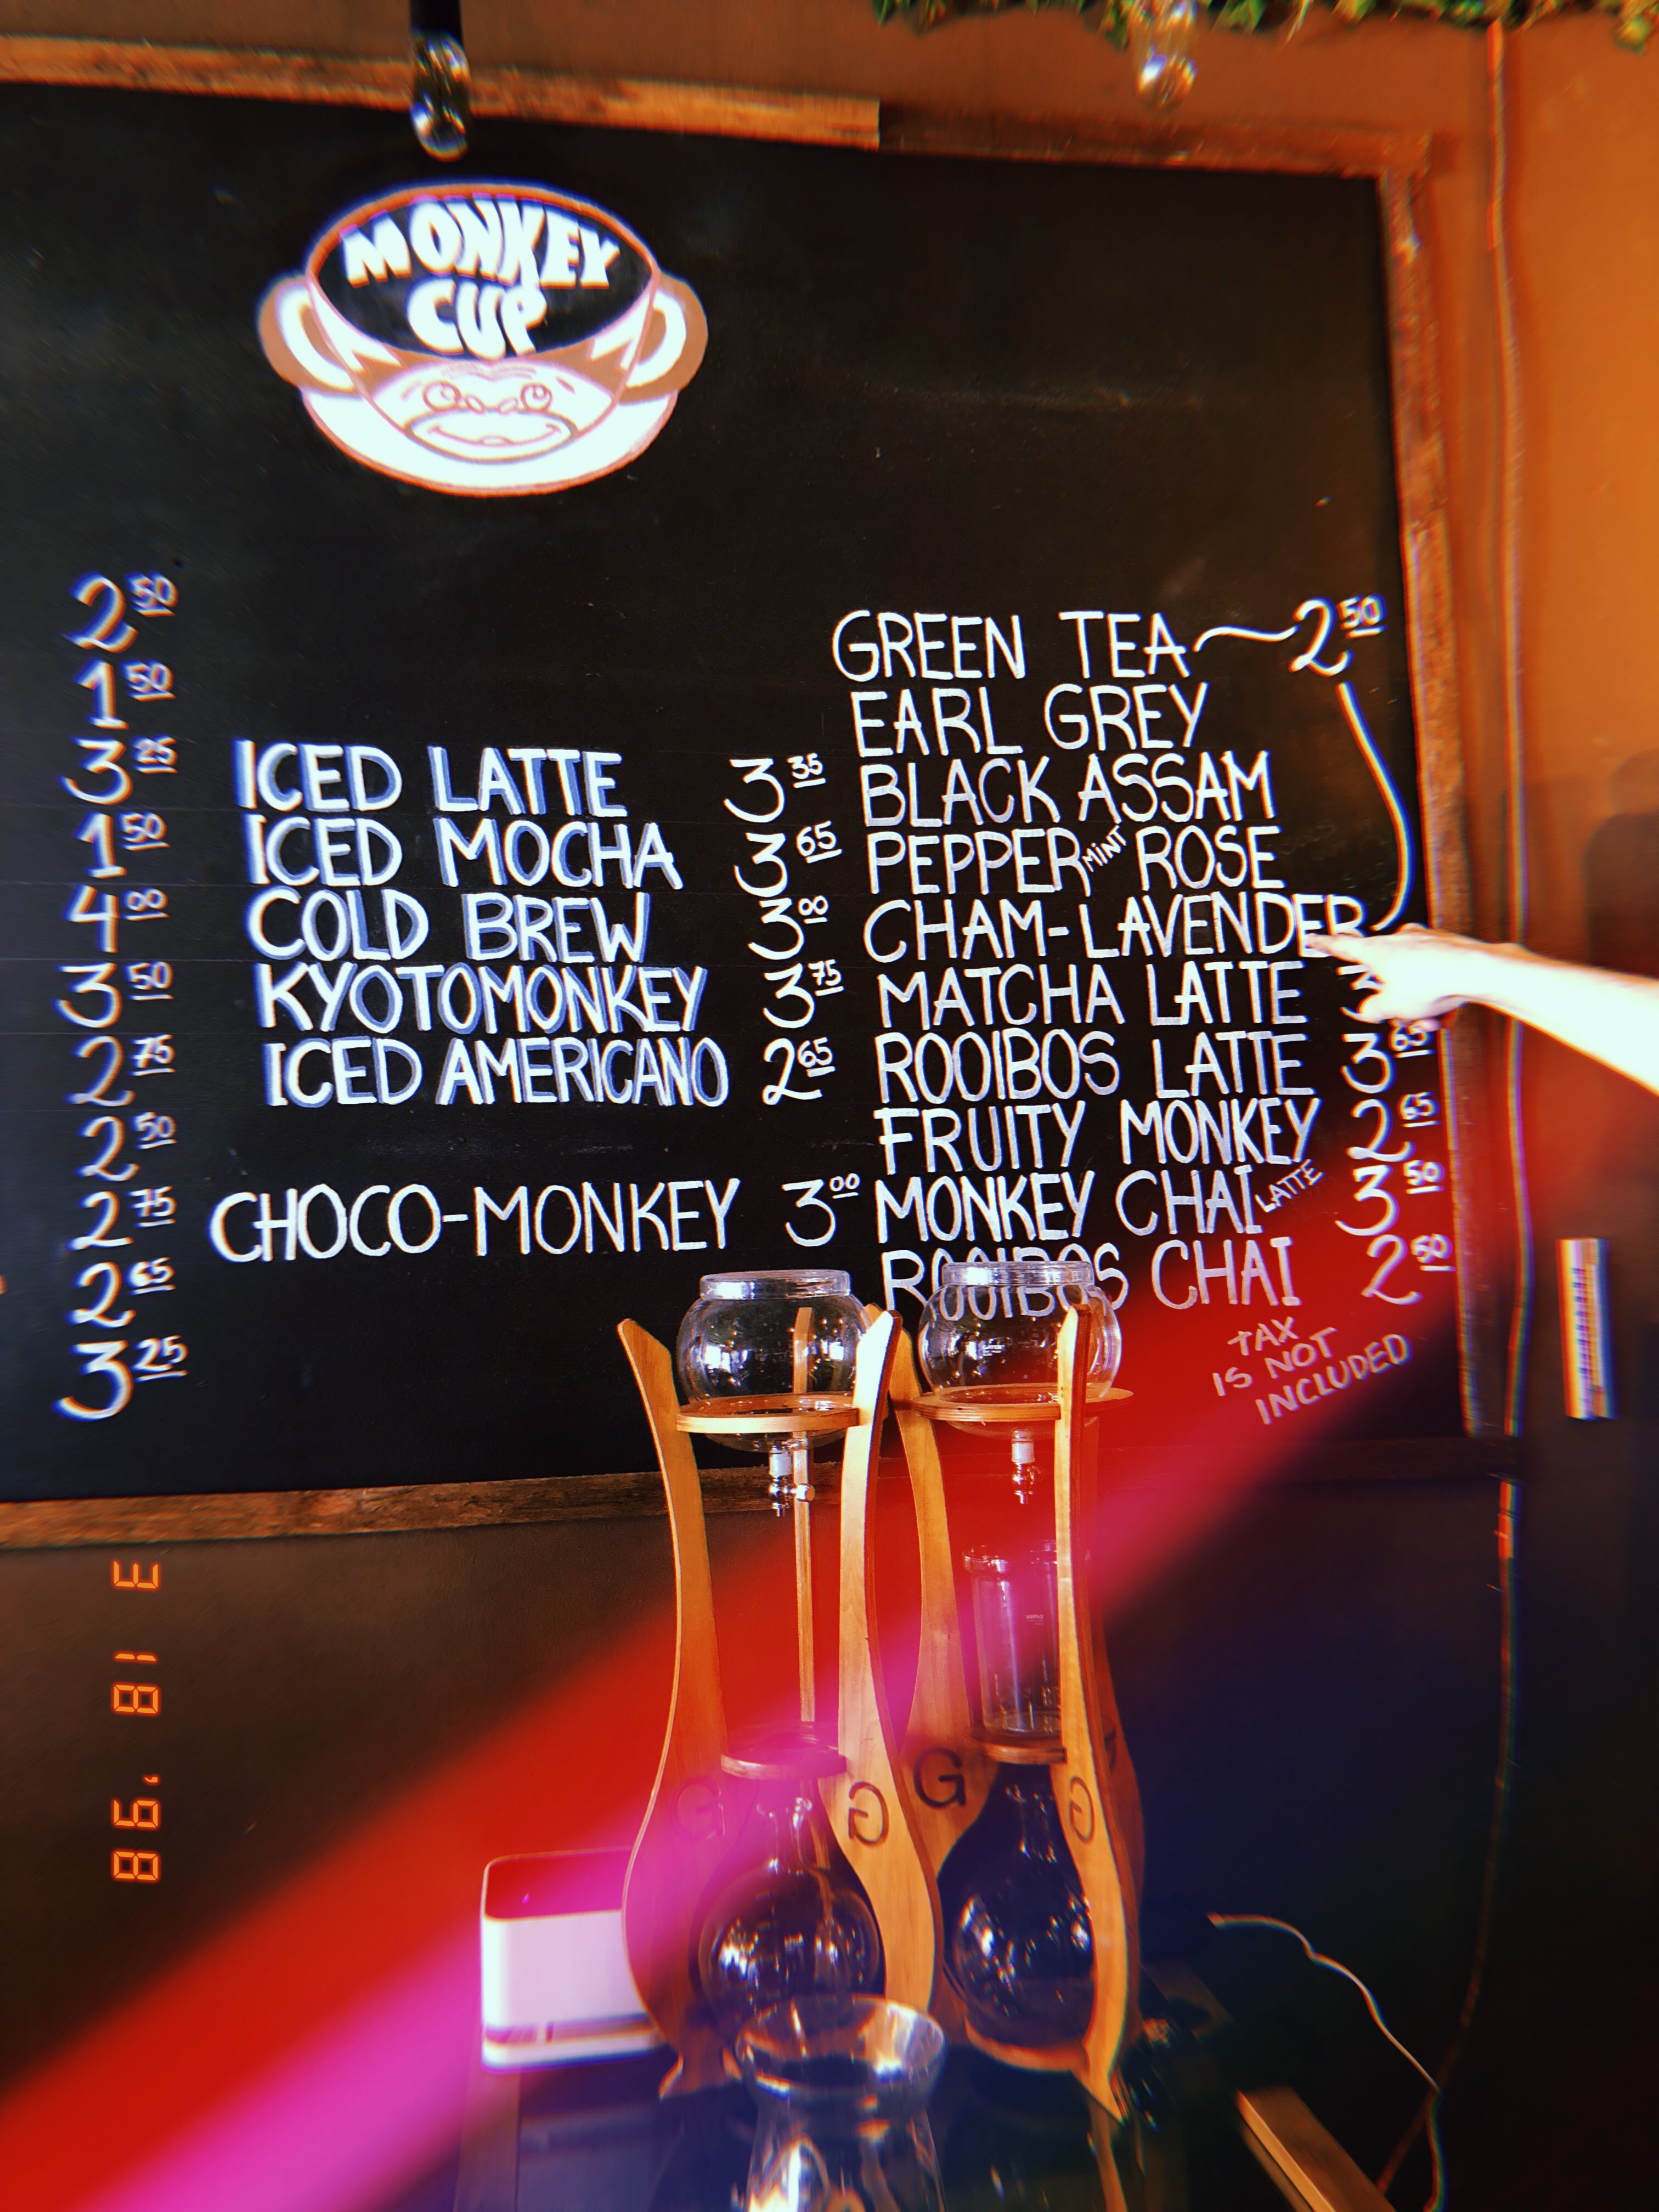 MONKEY
CUP
2 50
1 50
3 25
1 50
4 00
3 50
2 75
2 50
2 75
2 65
3 25
ICED LATTE 3 35
ICED MOCHA 3 65
COLD BREW 3 00
KYOTOMONKEY 3 75
ICED AMERICANO 2 65
CHOCO-MONKEY 3 00
GREEN TEA 2 50
EARL GREY
BLACK ASSAM
PEPPERMINT ROSE
CHAM-LAVENDER
MATCHA LATTE 3
ROOIBOS LATTE 3 65
FRUITY MONKEY 2 65
MONKEY CHAI LATTE 3 50
ROOIBOS CHAI 2 50
TAX
IS NOT
INCLUDED
G G G G